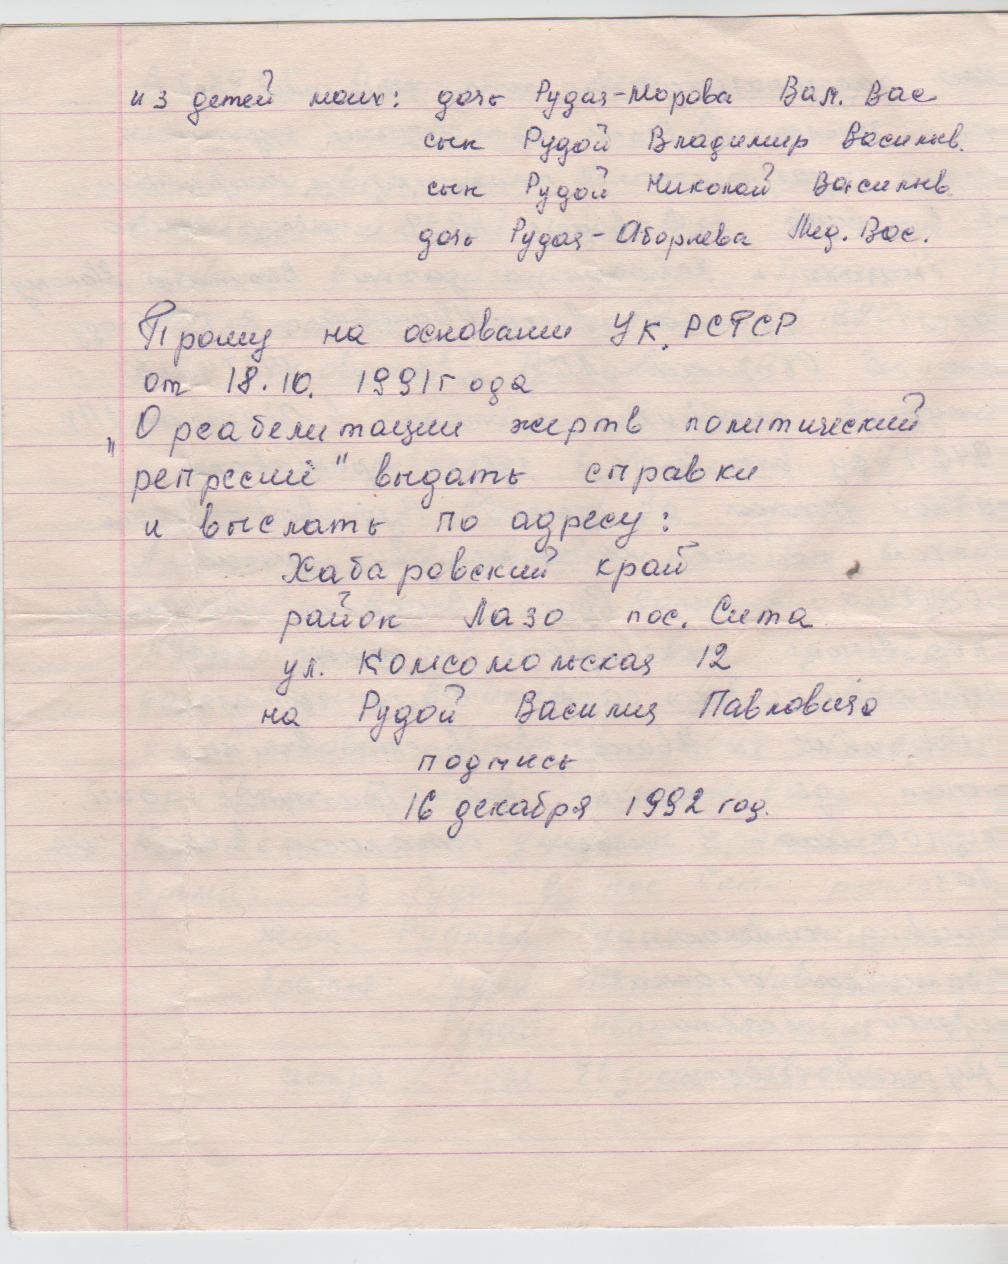 из детей моих: дочь Рудая-Морова Вал. Вас
сын Рудой Владимир Васильв.
сын Рудой Николай Васильв.
дочь Рудая- Вас.
Прошу на основании Ук. РСФСР
от 18.10. 1991г ода
„О реабелитации жертв политический
репрессий" выдать справки
и выслать по адресу:
Хабаровский край
район Лазо пос. Сита
ул. Комсомольская 12
на Рудой Василия Павловича
подпись
16 декабря 1992 год.